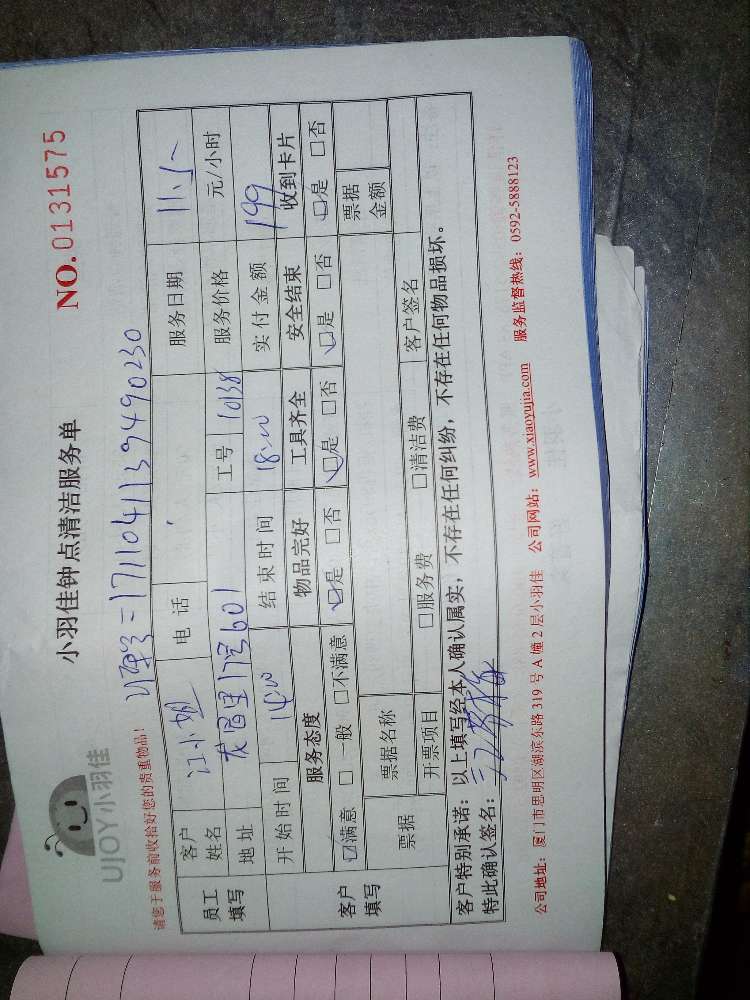 小羽佳钟点清洁服务单
NO.0131575
UJOY小羽佳
请您于服务前收拾好您的贵重物品!
订单号=1711041139490230
员工填写
客户姓名 江小姐 电话 服务日期 11.5
地址 17号601 工号 10138 服务价格 元/小时
开始时间 14:00 结束时间 18:00 实付金额 199
客户填写
服务态度 物品完好 工具齐全 安全结束 收到卡片
☑满意 □一般 □不满意 ☑是 □否 ☑是 □否 ☑是 □否 ☑是 □否
票据 票据名称 票据金额
开票项目 □服务费 □清洁费 客户签名
客户特别承诺:以上填写经本人确认属实,不存在任何纠纷,不存在任何物品损坏。
特此确认签名:
公司地址:厦门市思明区湖滨东路319号A幢2层小羽佳 公司网站:www.xiaoyujia.com 服务监督热线:0592-5888123